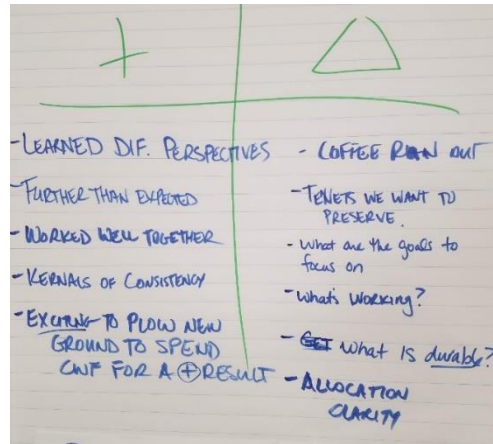 +
- LEARNED DIF. PERSPECTIVES
- FURTHER THAN EXPECTED
- WORKED WELL TOGETHER
- KERNALS OF CONSISTENCY
- EXCITING TO PLOW NEW
GROUND TO SPEND
CWF FOR A ⊕ RESULT
△
- COFFEE RAN OUT
- TENETS WE WANT TO
PRESERVE.
- What are the goals to
focus on
- What's Working?
- What is durable?
- ALLOCATION
CLARITY